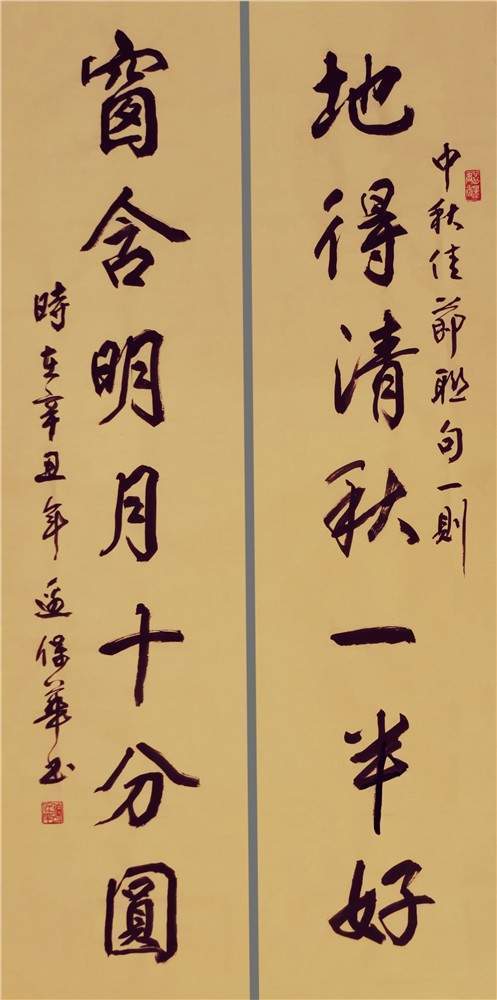 中秋佳節聯句一則
地得清秋一半好
窗含明月十分圓
時在辛丑年保華书